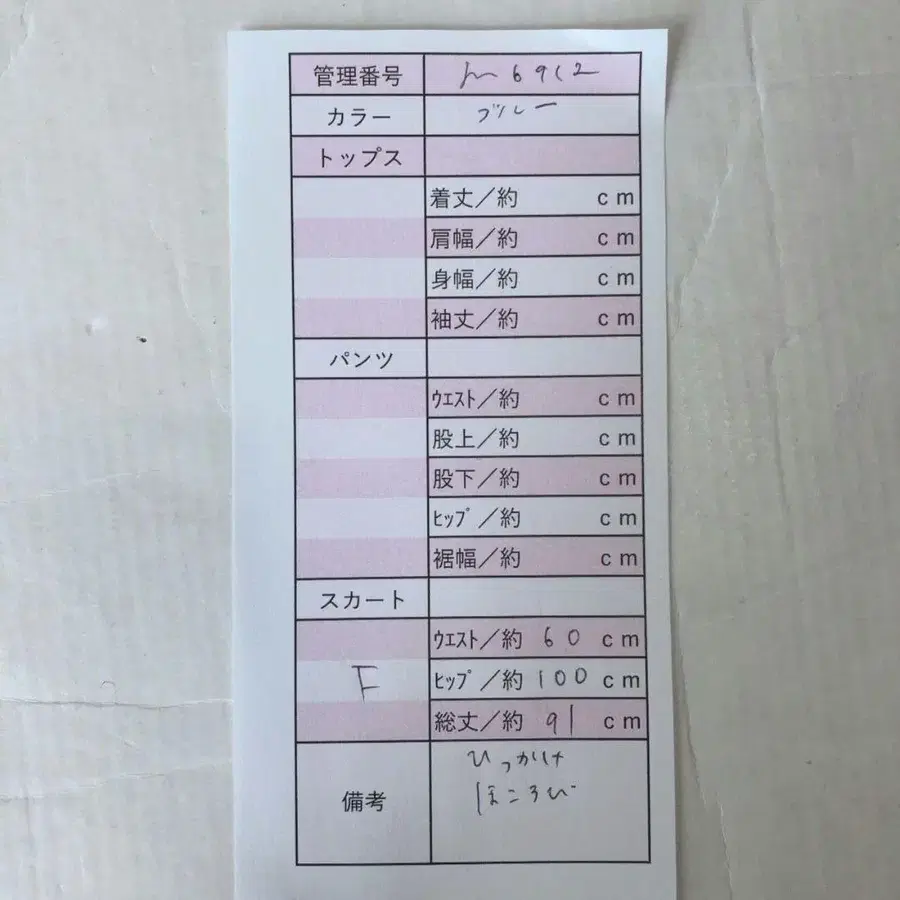 管理番号 m6912
カラー ブルー
トップス
着丈／約 cm
肩幅／約 cm
身幅／約 cm
袖丈／約 cm
パンツ
ｳｴｽﾄ／約 cm
股上／約 cm
股下／約 cm
ﾋｯﾌﾟ／約 cm
裾幅／約 cm
スカート
ｳｴｽﾄ／約 60 cm
F ﾋｯﾌﾟ／約 100 cm
総丈／約 91 cm
ひっかけ
備考 ほころび